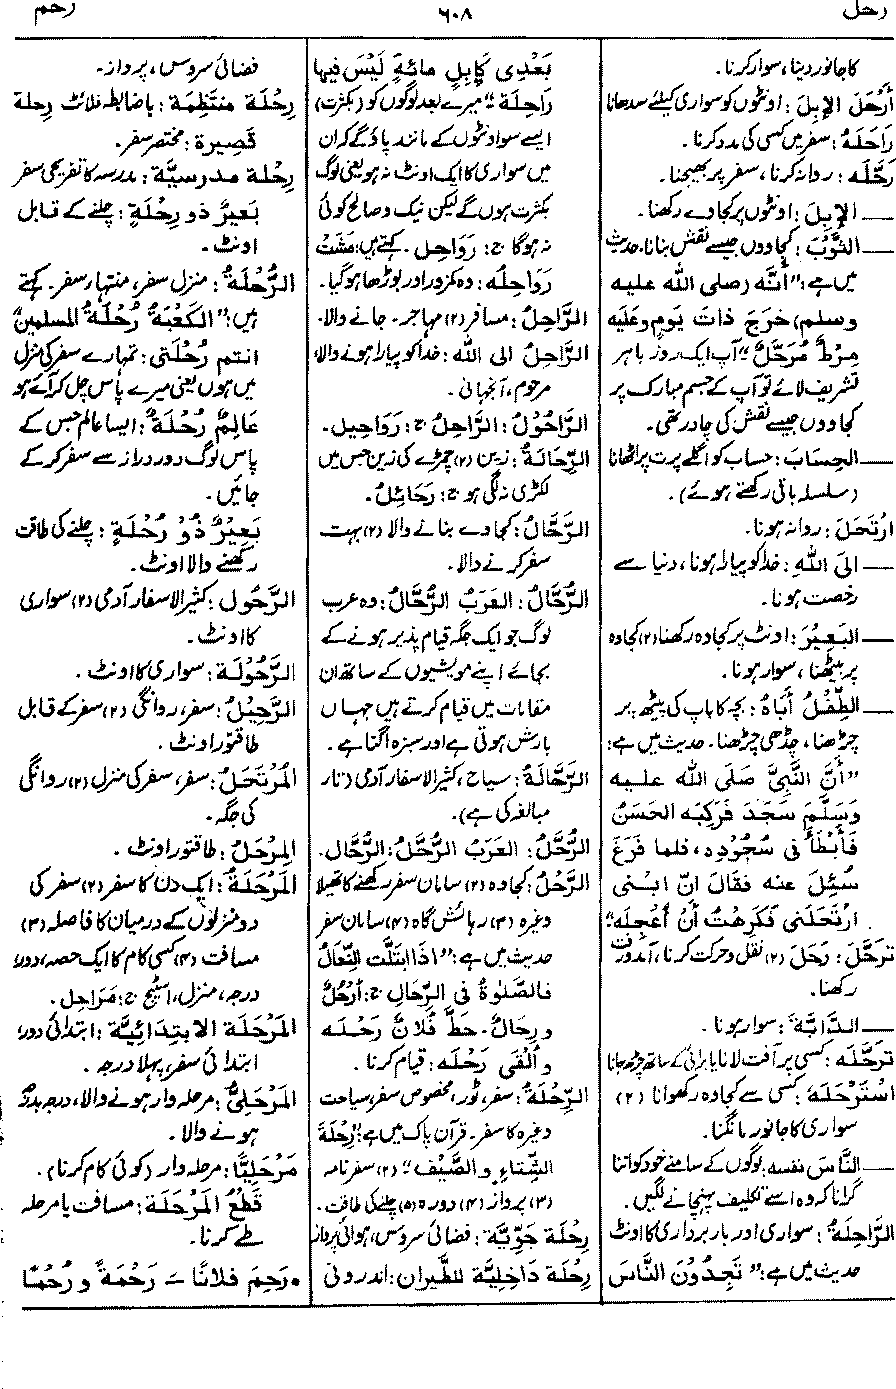 رحل
٦٠٨
رحم
کا جانور دینا، سوار کرنا۔
أَرْحَلَ الإِبِلَ: اونٹوں کو سواری کیلئے سدھانا
رَاحَلَهُ: سفر میں کسی کی مدد کرنا۔
رَحَّلَه: روانہ کرنا، سفر پر بھیجنا۔
— الإِبِلَ: اونٹوں پر کجاوے رکھنا۔
— الثَّوْبَ: کجاووں جیسے نقش بنانا۔ حدیث
میں ہے: "أَنَّه (صلی الله علیه
وسلم) خَرَجَ ذَاتَ یَومٍ وعَلَیه
مِرْطٌ مُرَحَّلٌ" آپ ایک روز باہر
تشریف لائے تو آپ کے جسم مبارک پر
کجاووں جیسے نقش کی چادر تھی۔
— الحِسَابَ: حساب کو اگلے پرت پر اٹھانا
(سلسلہ باقی رکھتے ہوئے)۔
ارْتَحَلَ: روانہ ہونا۔
— الیَ اللهِ: خدا کو پیارا ہونا، دنیا سے
رخصت ہونا۔
— البَعِیْرَ: اونٹ پر کجاوہ رکھنا (۲) کجاوہ
پر بیٹھنا، سوار ہونا۔
— الطِّفْلُ أَبَاهُ: بچہ کا باپ کی پیٹھ پر
چڑھنا، چڈھی چڑھنا۔ حدیث میں ہے:
"أَنَّ النَّبِیَّ صَلَی الله علیه
وَسَلَّمَ سَجَدَ فَرَکِبَه الحَسَنُ
فَأَبْطَأَ فی سُجُوْدِه، فلما فَرَغَ
سُئِلَ عنه فقَالَ انَّ ابْنی
ارْتَحَلَنی فَکَرِهْتُ أَنْ أُعْجِلَه"
تَرحَّلَ: رَحَلَ (۲) نقل و حرکت کرنا، آمدورفت
رکھنا۔
— الدَّابَّةَ: سوار ہونا۔
تَرحَّلَه: کسی پر آفت لانا یا برائی کے ساتھ چڑھ جانا
اسْتَرْحَلَهُ: کسی سے کجاوہ رکھوانا (۲)
سواری کا جانور مانگنا۔
— النَّاسَ نفسَه: لوگوں کے سامنے خود کو اتنا
گرانا کہ وہ اسے تکلیف پہنچانے لگیں۔
الرَّاحِلَةُ: سواری اور بار برداری کا اونٹ
حدیث میں ہے: "تَجِدُوْنَ النَّاسَ
بَعْدِی کَإِبِلٍ مائةٍ لَیْسَ فیها
رَاحِلَة" میرے بعد لوگوں کو (بکثرت)
ایسے سو اونٹوں کے مانند پاؤگے کہ ان
میں سواری کا ایک اونٹ نہ ہو یعنی لوگ
بکثرت ہوں گے لیکن نیک و صالح کوئی
نہ ہوگا ج: رَوَاحِل۔ کہتے ہیں: مَشَتْ
رَوَاحِلُه: وہ کمزور اور بوڑھا ہوگیا۔
الرَّاحِلُ: مسافر (۲) مہاجر۔ جانے والا۔
الرَّاحِلُ الی الله: خدا کو پیارا ہونے والا،
مرحوم، آنجہانی۔
الرَّاحُوْلُ: الرَّاحِلُ ج: رَوَاحِیل۔
الرِّحَالَةُ: زین (۲) چمڑے کی زین جس میں
لکڑی نہ لگی ہو ج: رَحَائِلُ۔
الرَّحَّالُ: کجاوے بنانے والا (۲) بہت
سفر کرنے والا۔
الرُّحَّالُ: العَرَبُ الرُّحَّالُ: وہ عرب
لوگ جو ایک جگہ قیام پذیر ہونے کے
بجائے اپنے مویشیوں کے ساتھ ان
مقامات میں قیام کرتے ہیں جہاں
بارش ہوتی ہے اور سبزہ اگتا ہے۔
الرَّحَّالَةُ: سیاح، کثیر الاسفار آدمی (تار
مبالغہ کی ہے)۔
الرُّحَّلُ: العَرَبُ الرُّحَّلُ: الرُّحَّال۔
الرَّحْلُ: کجاوہ (۲) سامان سفر رکھنے کا تھیلا
وغیرہ (۳) رہائش گاہ (۴) سامان سفر
حدیث میں ہے: "اذَا ابْتَلَّت النِّعَالُ
فالصَّلوٰةُ فی الرِّحَالِ ج: أرْحُلٌ
و رِحَالٌ۔ حَطَّ فُلانٌ رَحْلَه
و أَلْقَی رَحْلَه: قیام کرنا۔
الرِّحْلَةُ: سفر، ٹور، مخصوص سفر، سیاحت
وغیرہ کا سفر۔ قرآن پاک میں ہے: "رِحْلَةَ
الشِّتَاءِ والصَّیْف" (۲) سفر نامہ
(۳) پرواز (۴) دورہ (۵) چلنے کی طاقت۔
رِحْلَة جَوِّیَّة: فضائی سروس، ہوائی پرواز
رِحْلَة دَاخِلِیَّة للطَّیران: اندرونی
فضائی سروس، پرواز۔
رِحْلَة مُنتَظِمَة: باضابطہ فلائٹ رِحلة
قَصِیرة: مختصر سفر۔
رِحْلَة مدرسیَّة: مدرسہ کا تفریحی سفر
بَعِیرٌ ذو رِحْلَةٍ: چلنے کے قابل
اونٹ۔
الرُّحْلَةُ: منزل سفر، منتہار سفر۔ کہتے
ہیں: "الکَعْبَةُ رُحْلَةُ المسلمین
انتم رُحْلَتی: تمہارے سفر کی منزل
میں ہوں یعنی میرے پاس چل کر آئے ہو
عَالِمٌ رُحْلَةٌ: ایسا عالم جس کے
پاس لوگ دور دراز سے سفر کر کے
جائیں۔
بَعِیْرٌ ذُوْ رُحْلَةٍ: چلنے کی طاقت
رکھنے والا اونٹ۔
الرَّحُول: کثیر الاسفار آدمی (۲) سواری
کا اونٹ۔
الرَّحُوْلَة: سواری کا اونٹ۔
الرَّحِیْلُ: سفر، روانگی (۲) سفر کے قابل
طاقتور اونٹ۔
المُرْتَحَلُ: سفر، سفر کی منزل (۲) روانگی
کی جگہ۔
المِرْحَلُ: طاقتور اونٹ۔
المَرْحَلَةُ: ایک دن کا سفر (۲) سفر کی
دو منزلوں کے درمیان کا فاصلہ (۳)
مسافت (۴) کسی کام کا ایک حصہ، دور،
درجہ، منزل، اسٹیج ج: مَرَاحِل۔
المَرْحَلَة الابتدائیَّة: ابتدائی دور،
ابتدائی سفر، پہلا درجہ۔
المَرْحَلیُّ: مرحلہ وار ہونے والا، درجہ بدرجہ
ہونے والا۔
مَرْحَلِیًّا: مرحلہ وار (کوئی کام کرنا)۔
قَطْعُ المَرْحَلَة: مسافت یا مرحلہ
طے کرنا۔
• رَحِمَ فلانًا – رَحْمَةً و رُحْمًا